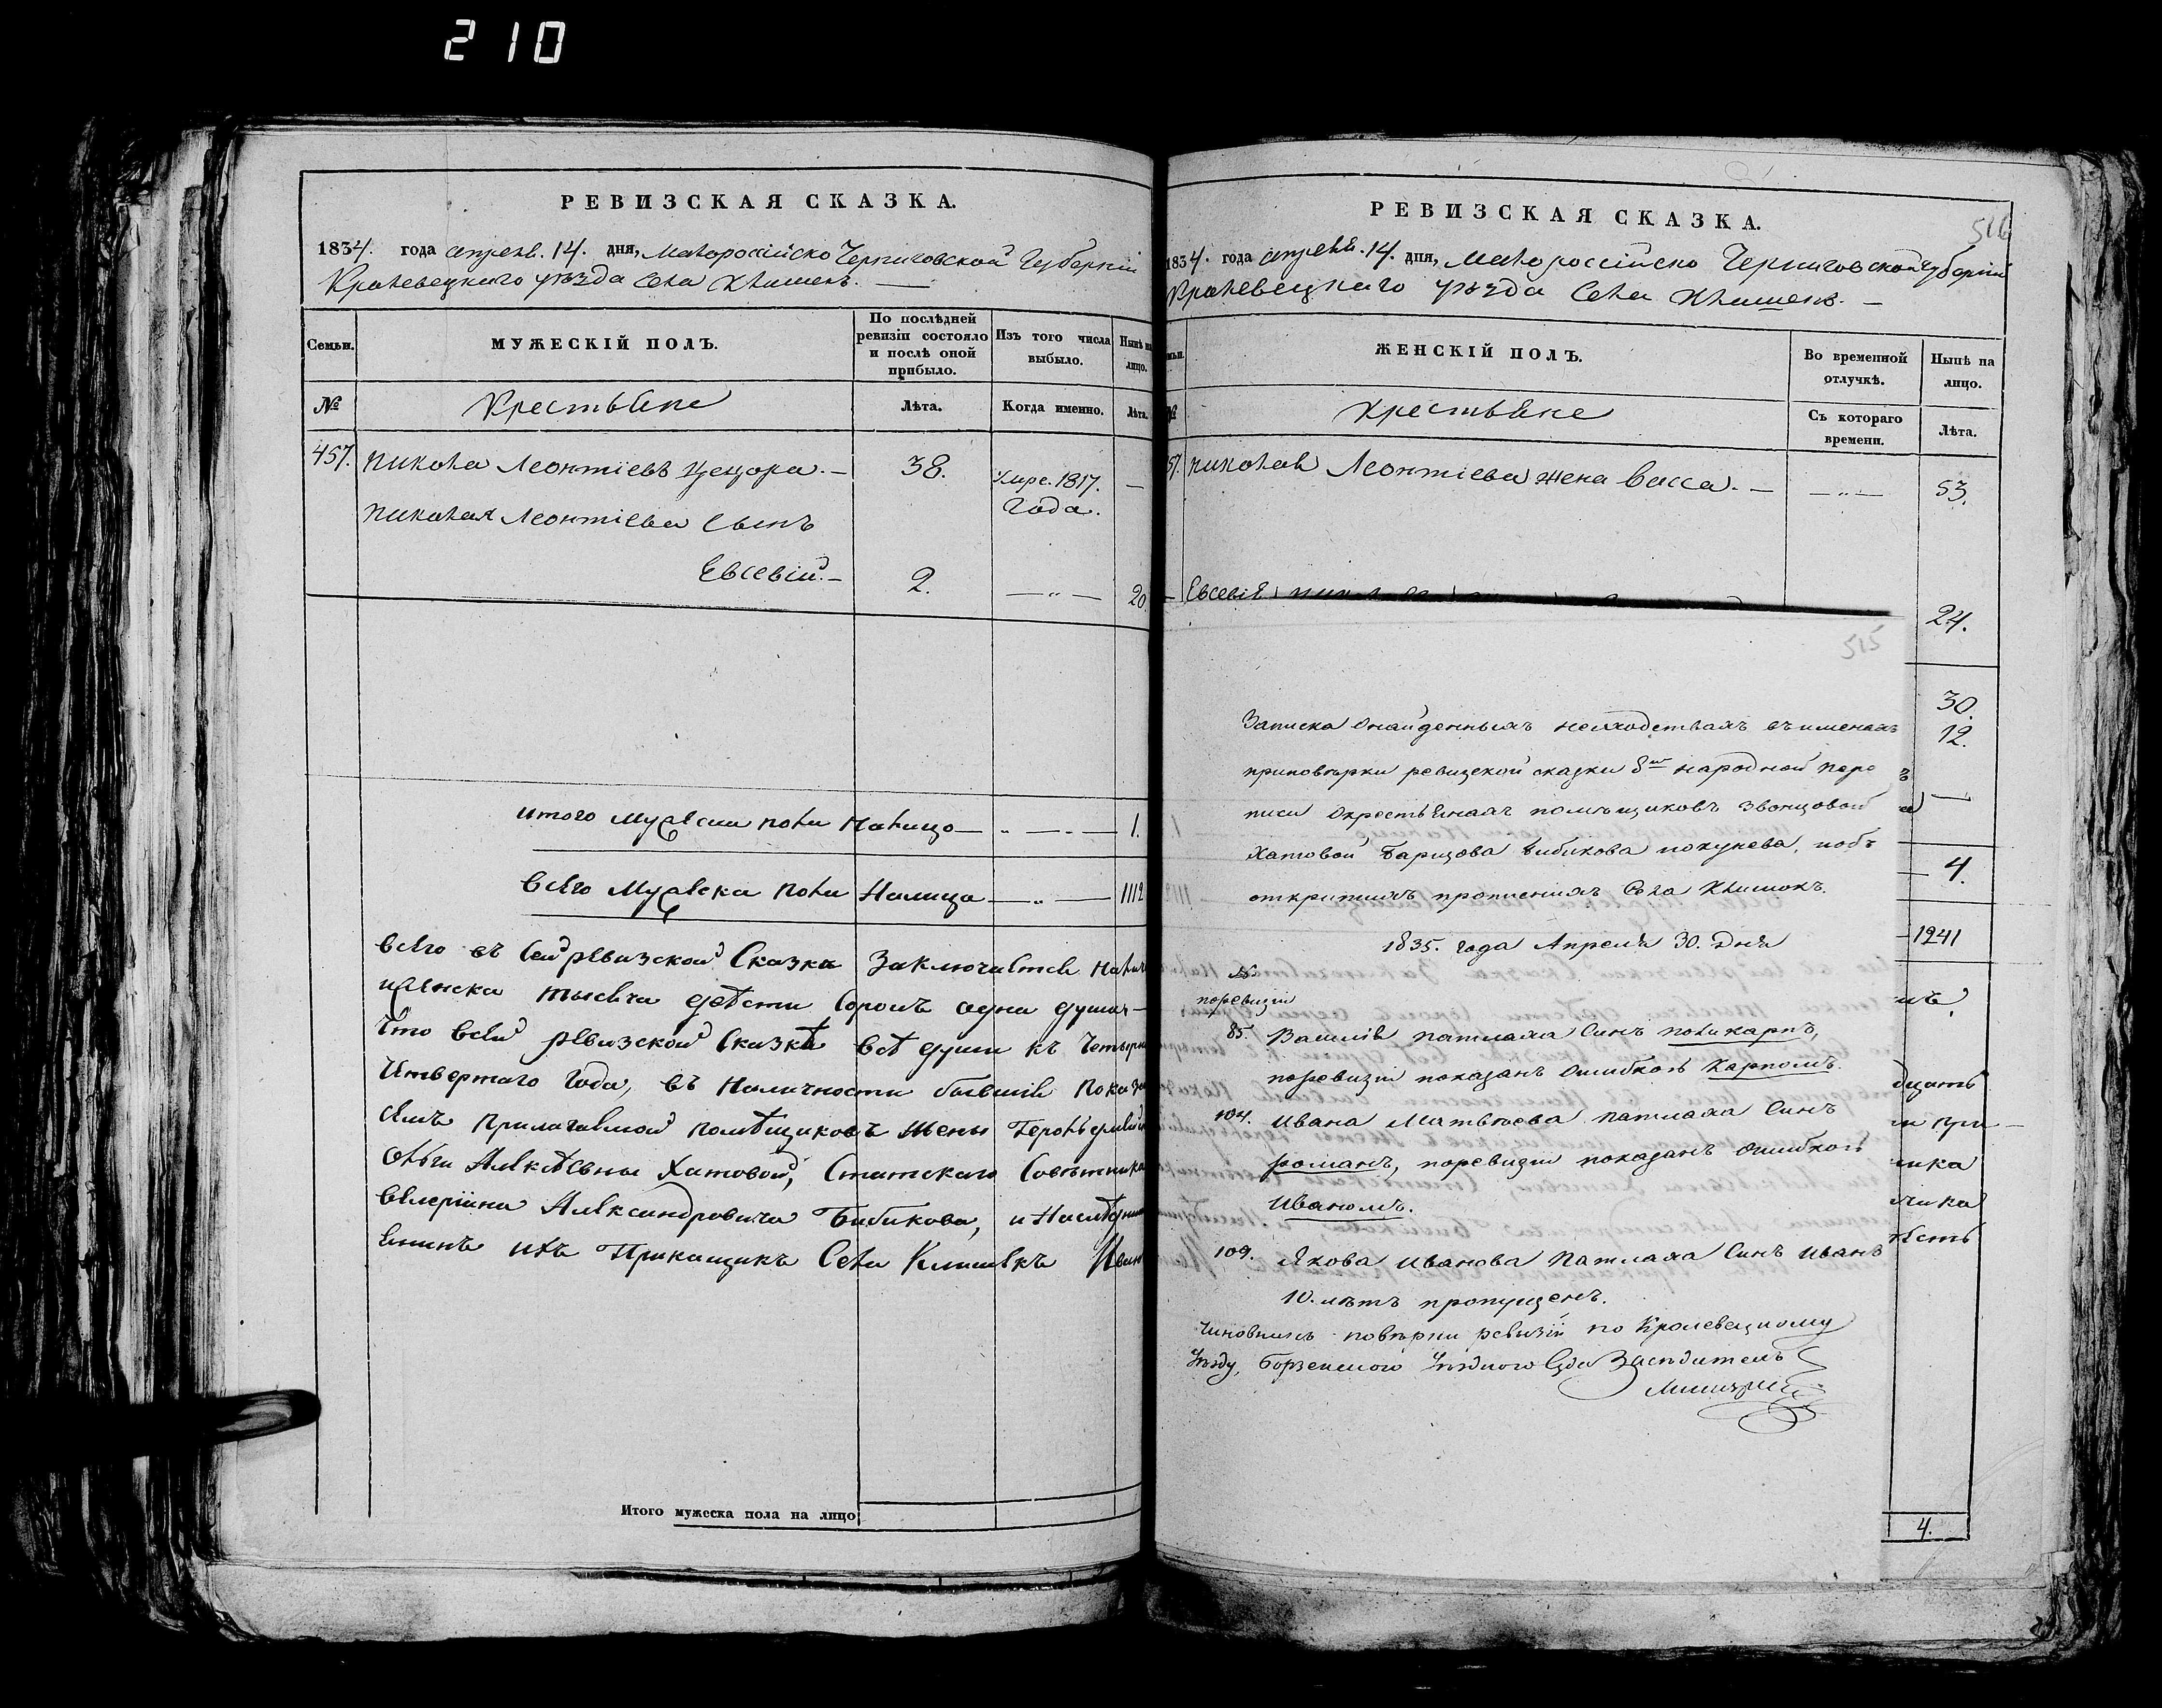 210
РЕВИЗСКАЯ СКАЗКА.
1834. года апреля. 14. дня, Малороссійско Черниговской Губерніи
Кролевецкаго уѣзда Села Клишекъ. —
Семьи.
МУЖЕСКІЙ ПОЛЪ.
По послѣдней ревизіи состояло и послѣ оной прибыло.
Изъ того числа выбыло.
Нынѣ на лицо.
№
Крестьяне
Лѣта.
Когда именно.
Лѣта.
457. Никола Леонтіевъ — 38. Умре. 1817. Года. —
Николая Леонтіева Сынъ
Евсевій. — 2. — „ — 20.
итого Мужеска пола Налицо — „ — „ — 1.
Всего Мужеска пола Налицо — „ — 1112
Всего въ Сей ревизской Сказке Заключается
женска тысяча двѣсти Сорокъ одна душа —
Что всей ревизской Сказкѣ всѣ души къ
Четвертаго Года, въ Наличности бывшіе
помѣщиковъ Жены
Ольги Алексѣевны Хатовой, Статскаго Совѣтника
Валеріяна Александровича Бибикова, и
ихъ Прикащикъ Села Клишекъ
Итого мужеска пола на лицо
РЕВИЗСКАЯ СКАЗКА.
516
1834. года апреля. 14. дня, Малороссійско Черниговской Губерніи
Кролевецкаго уѣзда Села Клишекъ. —
ЖЕНСКІЙ ПОЛЪ.
Во временной отлучкѣ.
Нынѣ на лицо.
Крестьяне
Съ котораго времени.
Лѣта.
57. Николая Леонтіева жена Васса. — — „ — 53.
Евсевія
24.
30.
12.
4.
1241
515
Записка онайденныхъ несходствахъ въ именахъ
приповѣрки ревизской сказки 8й народной пере
писи окрестьянахъ помѣщиковъ Звонцовой
Хатовой Барцова Бибикова
открытіяхъ Села Клишокъ.
1835. года Апреля 30. Дня
№
поревизіи
85. Василія Патлаха Синъ Поликарпъ,
поревизіи показанъ Ошибкою Карпомъ.
104. Ивана Матвѣева Патлаха Синъ
романъ, поревизіи показанъ ошибкою
Иваномъ.
109. Якова Иванова Патлаха Синъ Иванъ
10. лѣтъ пропущенъ.
Чиновникъ повѣрки ревизіи по Кролевецкому
Уѣзду, Борзенскаго Уѣзднаго Суда Засѣдатель
4.